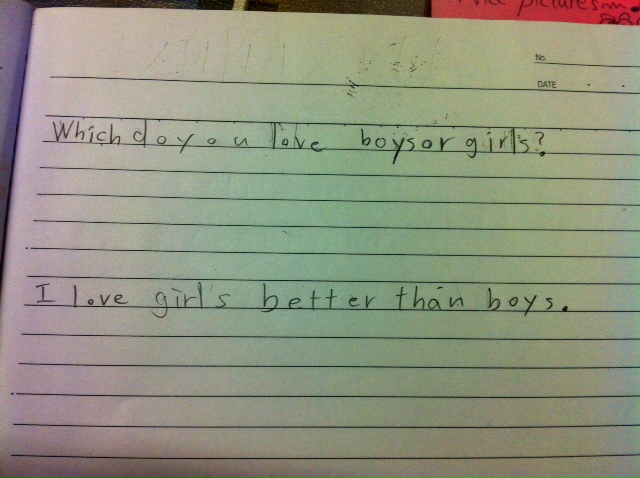 Nice pictures
No.
DATE . .
Which do you love boys or girls?
I love girls better than boys.